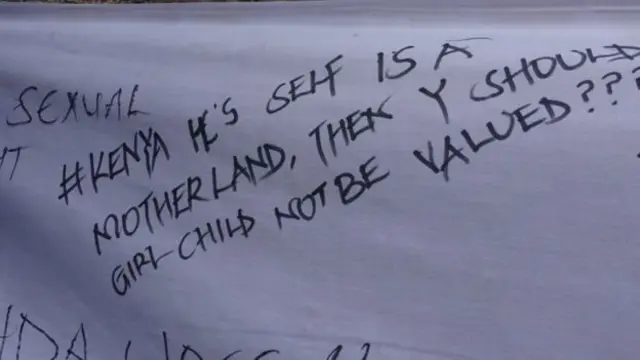 SEXUAL
#KENYA HE'S SELF IS A
MOTHERLAND, THEN Y SHOULD
GIRL CHILD NOT BE VALUED???